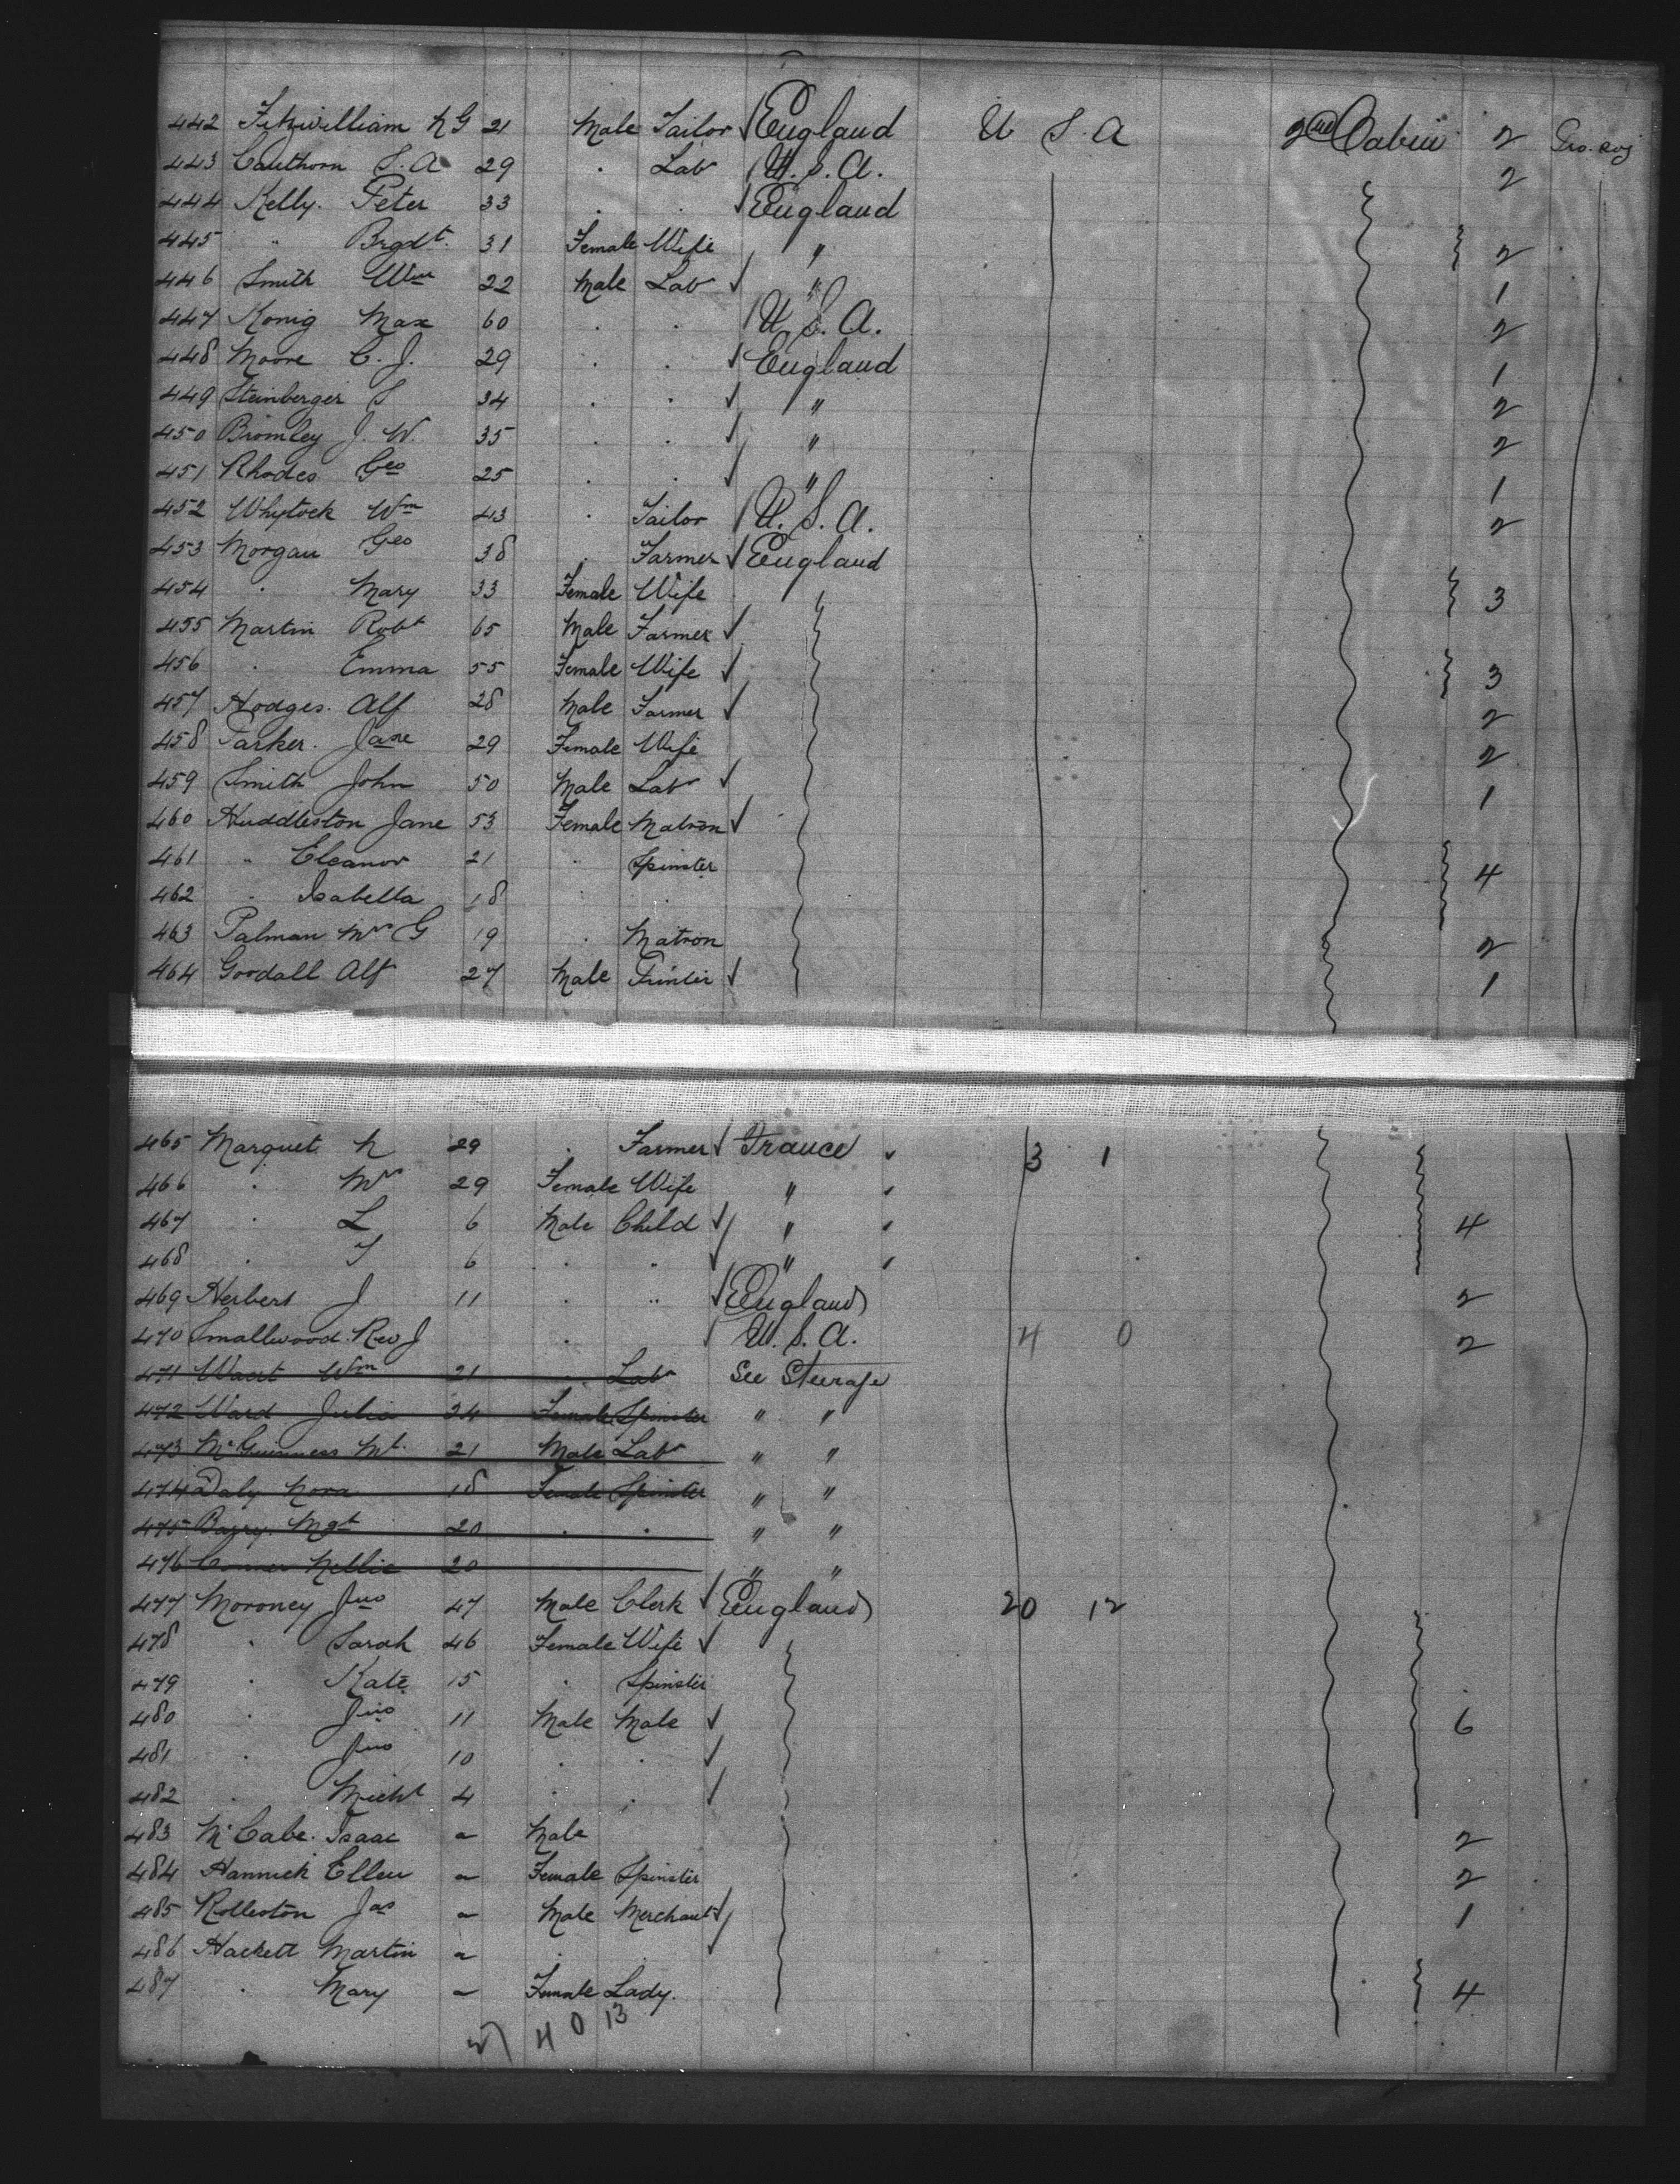 442 Fitzwilliam H G 21 Male Tailor England U S A 2nd Cabin 2
443 Cawthorn S. A 29 . Lab U. S. A. 2
444 Kelly. Peter 33 . . England
445 " Brgdt. 31 Female Wife " 2
446 Smith Wm 22 Male Lab " 1
447 Konig Max 60 . . U. S. A. 2
448 Moore C. J. 29 . . England 1
449 Steinberger S 34 . . " 2
450 Bromley J. W. 35 . . " 2
451 Rhodes Geo 25 . . " 1
452 Whytock Wm 43 . Tailor U. S. A. 2
453 Morgan Geo 38 . Farmer England
454 . Mary 33 Female Wife 3
455 Martin Robt 65 Male Farmer
456 . Emma 55 Female Wife 3
457 Hodges. Alf 28 Male Farmer 2
458 Parker. Jane 29 Female Wife 2
459 Smith John 50 Male Lab 1
460 Huddleston Jane 53 Female Matron
461 " Eleanor 21 . Spinster 4
462 . Isabella 18 . .
463 Palman Mrs G 19 . Matron 2
464 Goodall Alf 27 Male Printer 1
465 Marquet N 29 . Farmer France 3 1
466 . Mrs 29 Female Wife "
467 . L 6 Male Child " 4
468 . 6 . . "
469 Herbert J 11 . " England 2
470 Smallwood Rev J . U. S. A. 4 0 2
471 Wm 21 Lab See Steerage
472 Ward Julia 24 Female Spinster " "
473 McGuinness 21 Male Lab " "
474 Daly Nora 18 Female Spinster " "
475 Barry. Mgt 20 . . " "
476 Nellie 20 " "
477 Moroney Jno 47 Male Clerk England 20 12
478 . Sarah 46 Female Wife
479 . Kate 15 . Spinster
480 . Jno 11 Male Male 6
481 . Jno 10 . .
482 . Michl 4 . .
483 McCabe. Isaac - Male 2
484 Hannick Ellen - Female Spinster 2
485 Rolleston Jas - Male Merchant 1
486 Hackett Martin - .
487 . Mary - Female Lady. 4
4 0 13